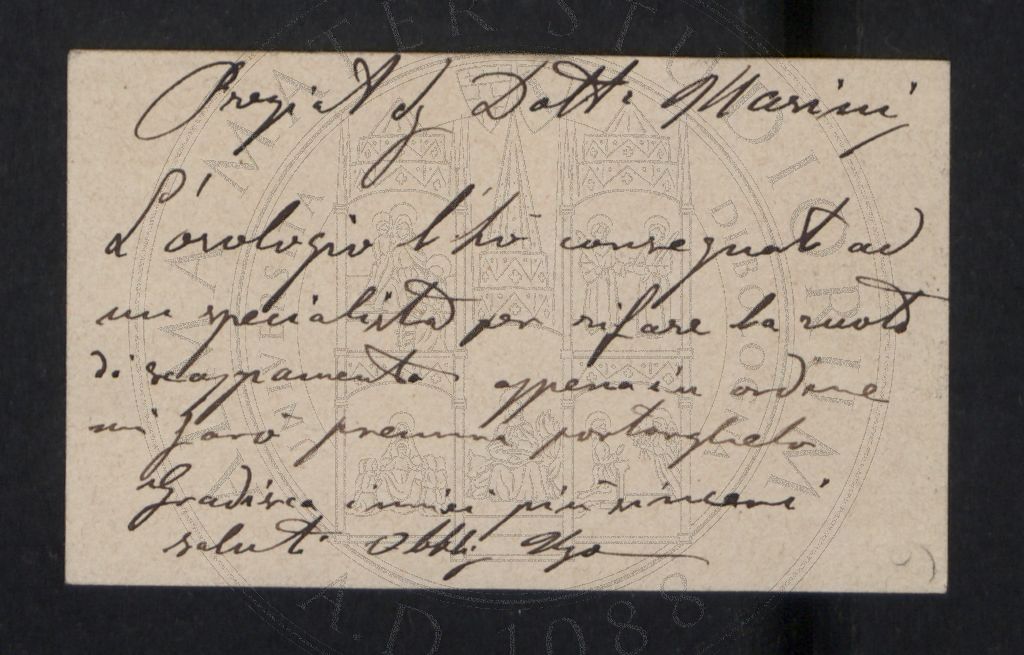 Pregiat Sg Dott. Marini
L'orologio l'hò consegnato ad
un specialista per rifare la ruota
di scappamento appena in ordine
mi farò premura portarglielo
Gradisca i miei più sinceri
saluti Obblg Ugo
ALMA MATER STUDIORUM
A.D. 1088